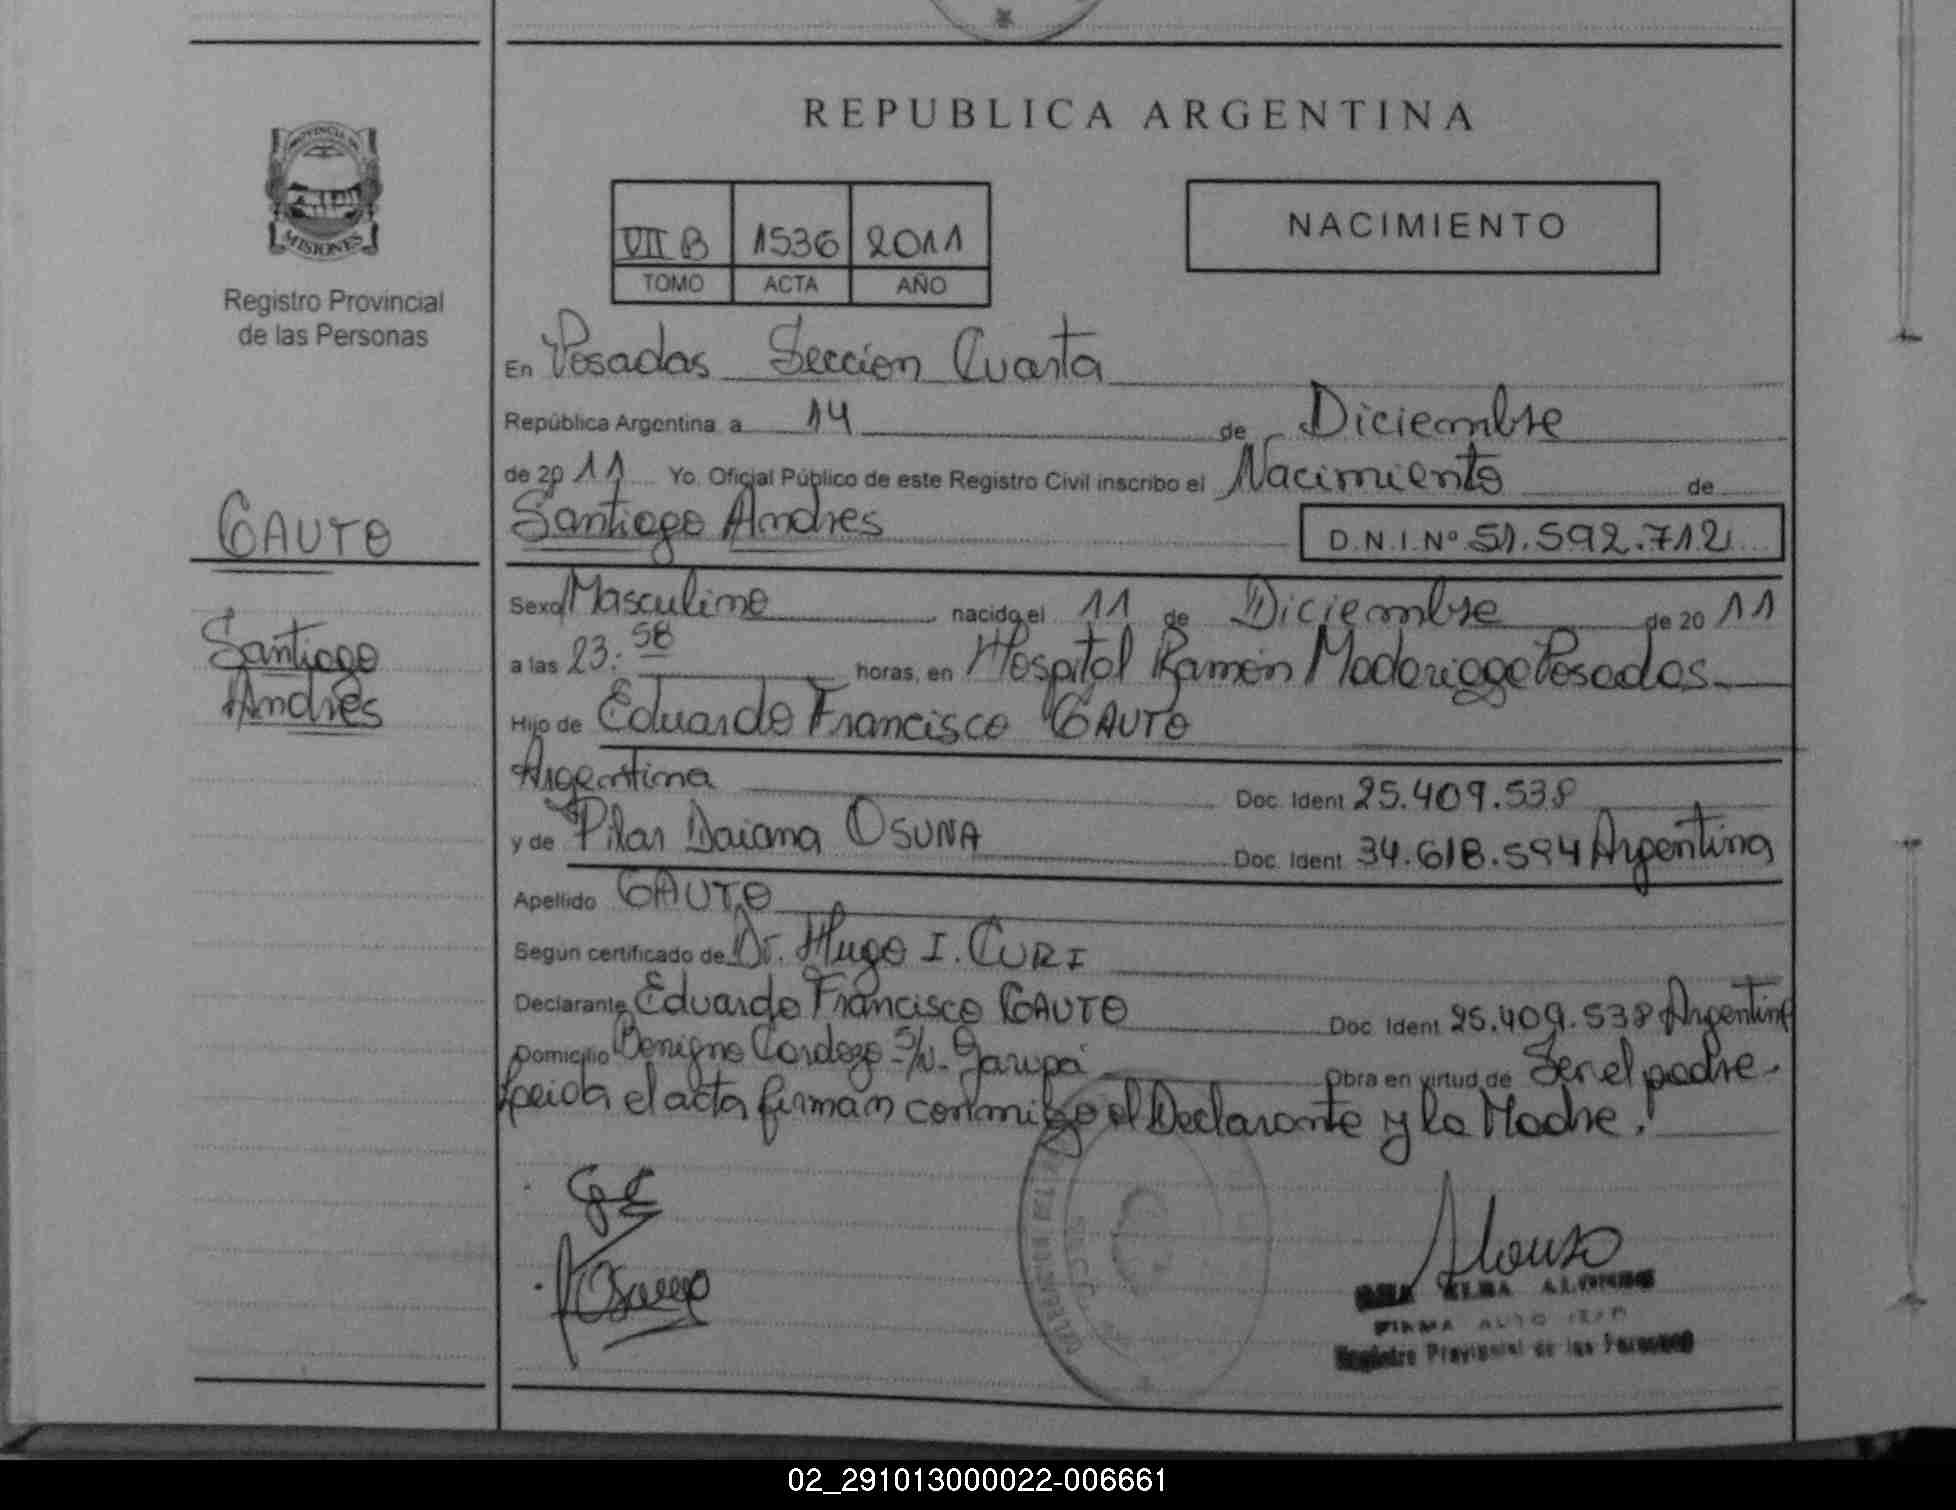 REPUBLICA ARGENTINA
PROVINCIA DE
MISIONES
Registro Provincial
de las Personas
VII B 1536 2011
TOMO ACTA AÑO
NACIMIENTO
En Posadas Seccion Cuarta
República Argentina a 14 de Diciembre
de 2011 Yo. Oficial Público de este Registro Civil inscribo el Nacimiento de
GAUTO
Santiago Andres
D.N.I.Nº 51.592.712
Santiago
Andrés
Sexo Masculino nacido el 11 de Diciembre de 2011
a las 23:58 horas, en Hospital Ramón Madariaga Posadas
Hijo de Eduardo Francisco GAUTO
Argentina Doc. Ident 25.409.538
y de Pilar Daiana OSUNA Doc. Ident. 34.618.594 Argentina
Apellido GAUTO
Según certificado de Dr. Hugo I. CURI
Declarante Eduardo Francisco GAUTO Doc. Ident 25.409.538 Argentina
Domicilio Benigno Cardozo S/N. Garupá Obra en virtud de Ser el padre.
Leida el acta firman conmigo el Declarante y la Madre.
Alonso
ELBA ALONSO
FIRMA AUTORIZ
Registro Provincial de las Personas
02_291013000022-006661